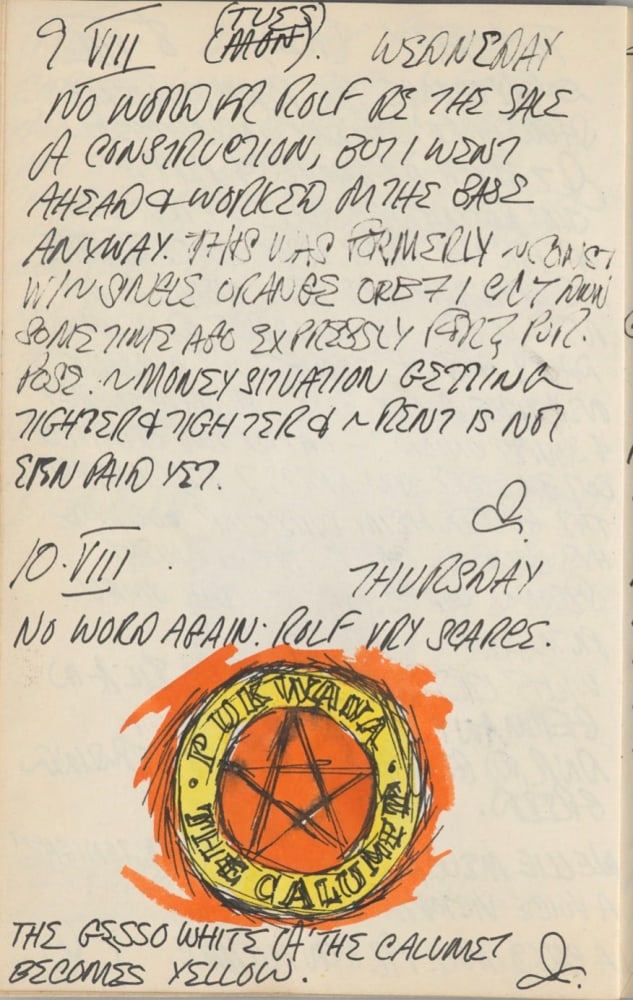 9 VIII (TUES) (MON). WEDNEDAY
NO WORD FR ROLF RE THE SALE
OF CONSTRUCTION, BUT I WENT
AHEAD & WORKED ON THE BASE
ANYWAY. THIS WAS FORMERLY ~ CONST
W/ ~ SINGLE ORANGE ORB I CUT DOWN
SOMETIME AGO EXPRESSLY FOR PUR-
POSE. ~ MONEY SITUATION GETTING
TIGHTER & TIGHTER & ~ RENT IS NOT
EVEN PAID YET.
10·VIII THURSDAY
NO WORD AGAIN: ROLF VRY SCARCE.
· PUKWANA ·
THE CALUMET
THE GESSO WHITE OF THE CALUMET
BECOMES YELLOW.